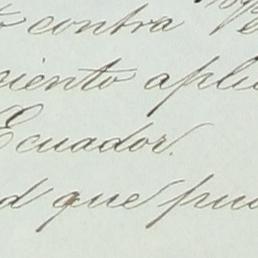 contra
ciento apli
Ecuador.
d que pu